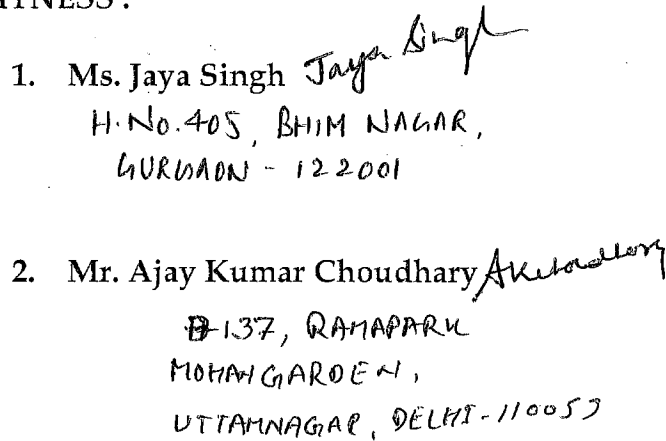 WITNESS :
1. Ms. Jaya Singh Jaya Singh
H.No.405, BHIM NAGAR,
GURGAON - 122001
2. Mr. Ajay Kumar Choudhary AKchoudhary
137, RAMAPARK
MOHAN GARDEN,
UTTAMNAGAR, DELHI-110059